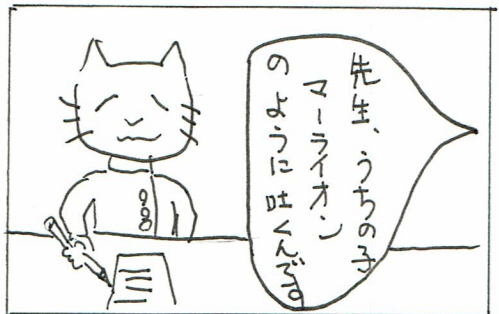 先生、うちの子
マーライオン
のように吐くんです。